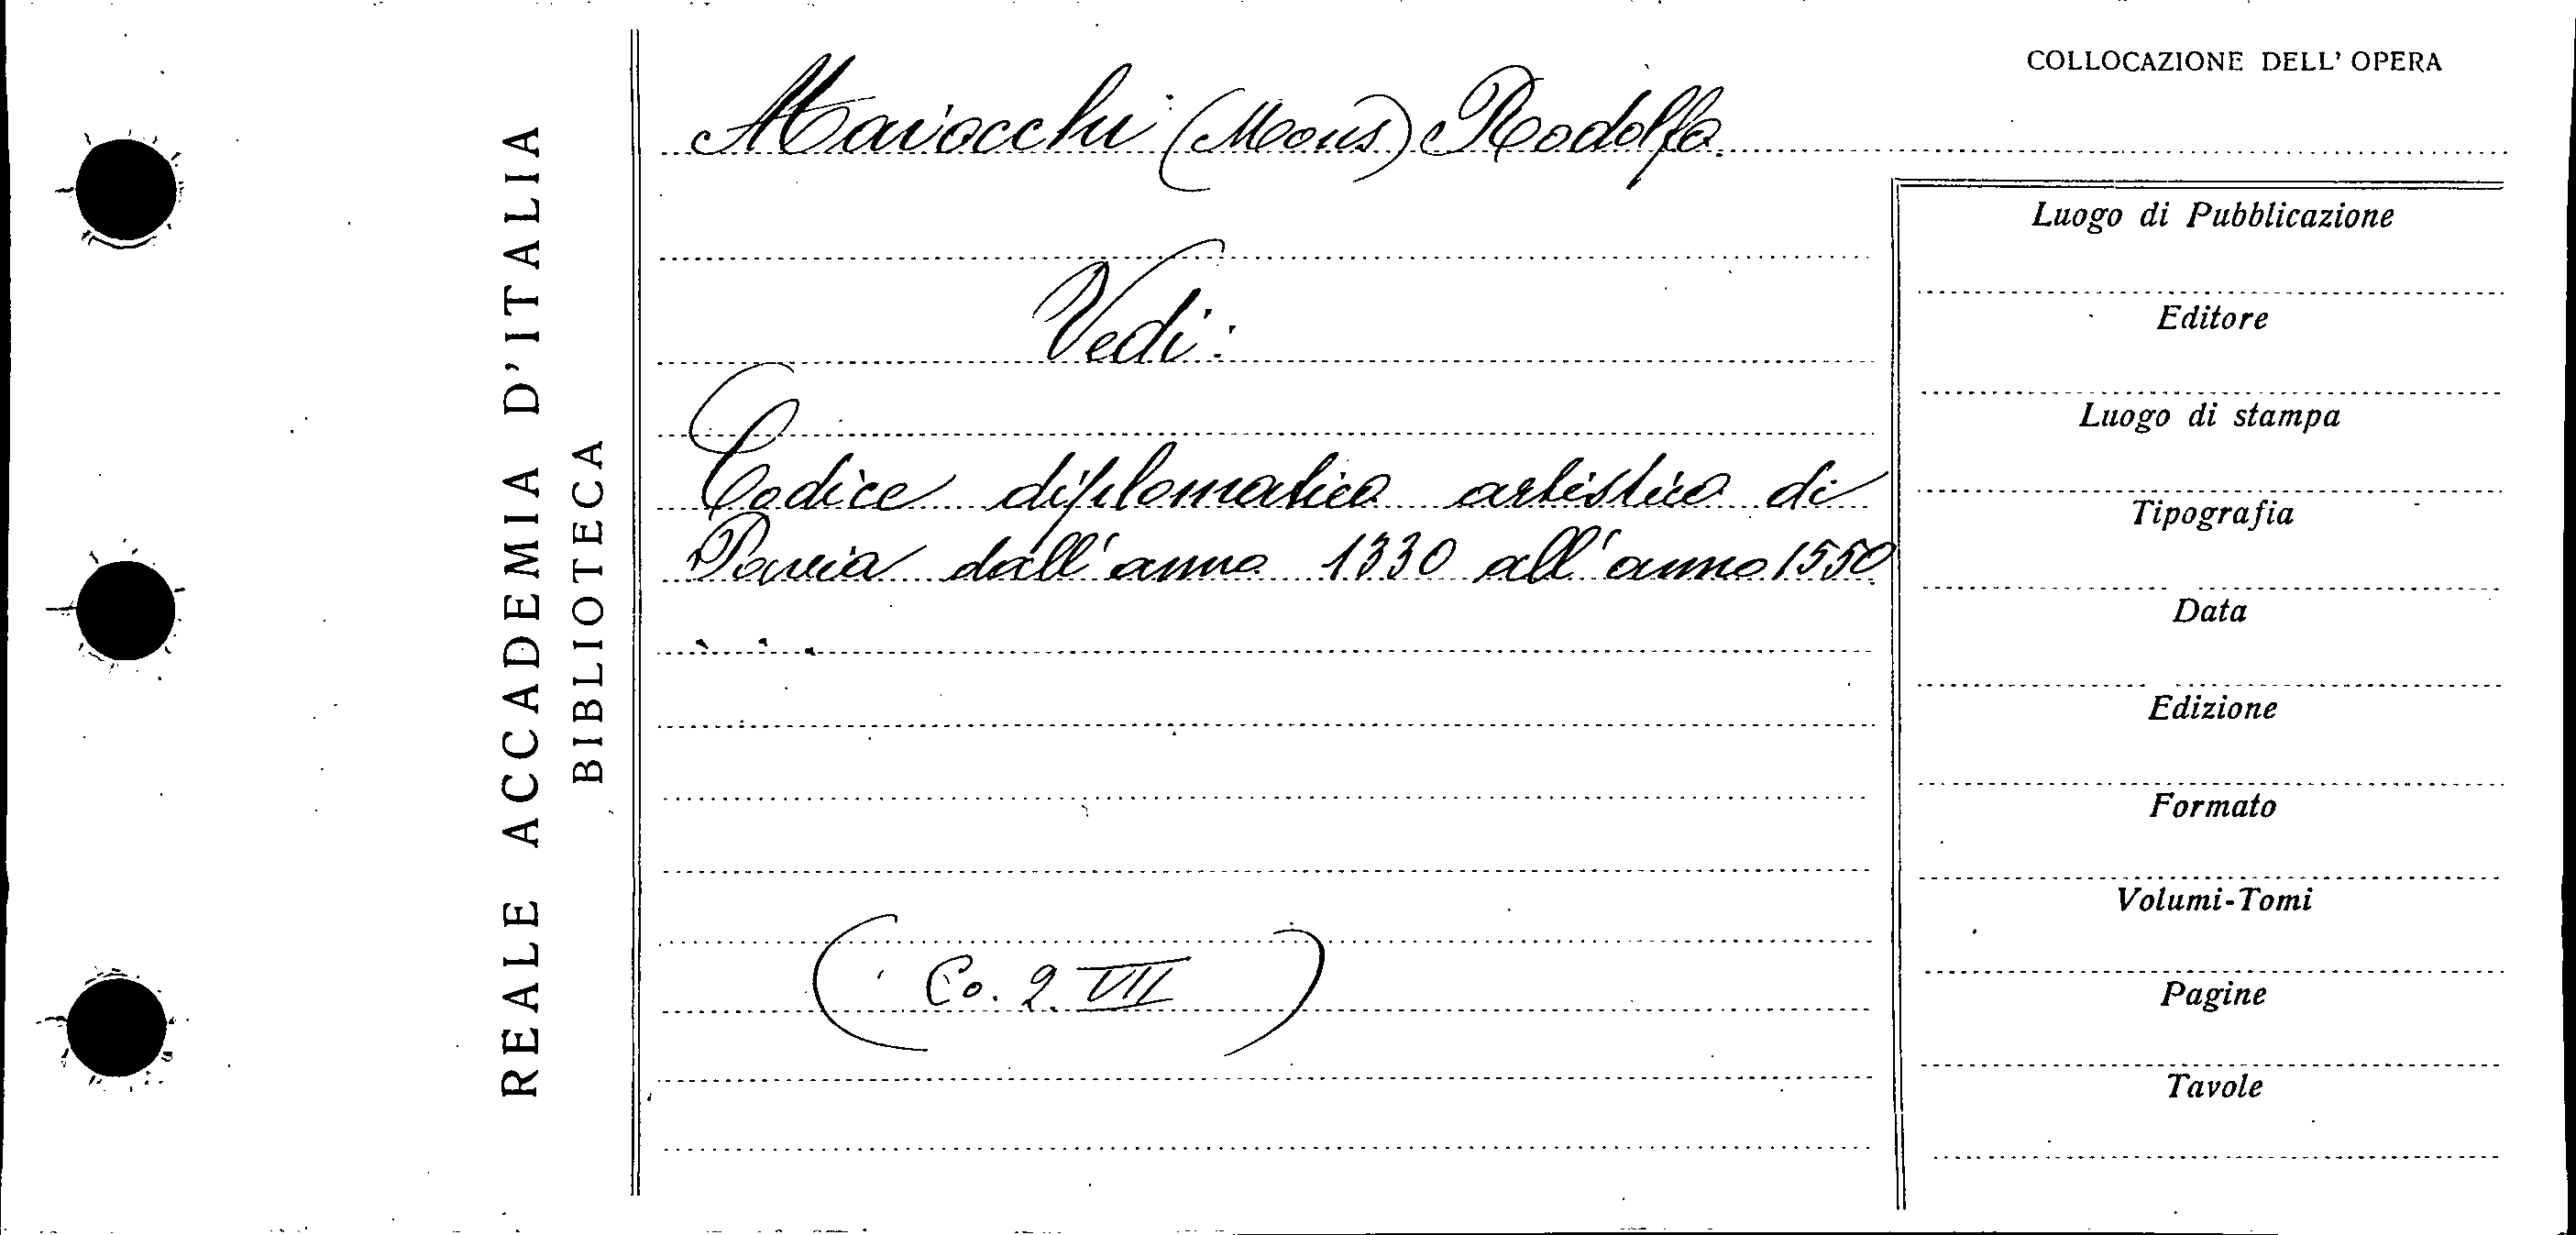 REALE ACCADEMIA D'ITALIA
BIBLIOTECA
COLLOCAZIONE DELL' OPERA
Maiocchi (Mons) Rodolfo.
Vedi:
Codice diplomatico artistico di
Pavia dall'anno 1330 all'anno 1550
(Co. 2. VII)
Luogo di Pubblicazione
Editore
Luogo di stampa
Tipografia
Data
Edizione
Formato
Volumi-Tomi
Pagine
Tavole